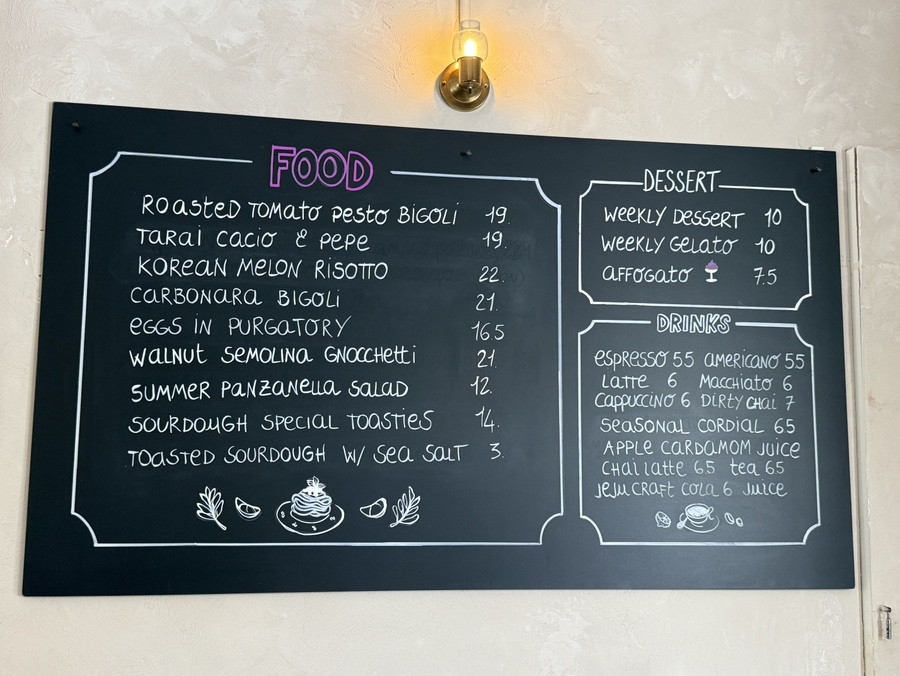 FOOD
ROASTED TOMATO PESTO BIGOLI 19.
TARAI CACIO & PEPE 19.
KOREAN MELON RISOTTO 22.
CARBONARA BIGOLI 21.
EGGS IN PURGATORY 16.5
WALNUT SEMOLINA GNOCCHETTI 21.
SUMMER PANZANELLA SALAD 12.
SOURDOUGH SPECIAL TOASTIES 14.
TOASTED SOURDOUGH W/ SEA SALT 3.
DESSERT
WEEKLY DESSERT 10
WEEKLY GELATO 10
AFFOGATO 7.5
DRINKS
ESPRESSO 55 AMERICANO 55
LATTE 6 MACCHIATO 6
CAPPUCCINO 6 DIRTY CHAI 7
SEASONAL CORDIAL 65
APPLE CARDAMOM JUICE
CHAI LATTE 65 TEA 65
JEJU CRAFT COLA 6 JUICE